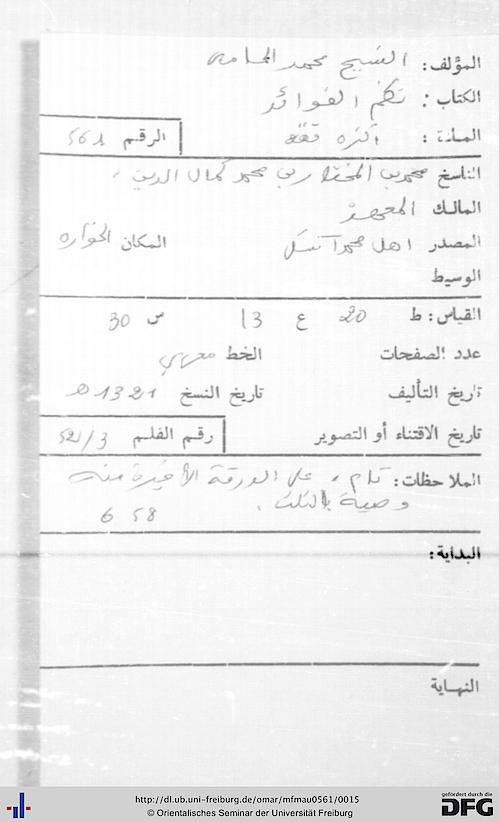 المؤلف: الشيخ محمد
الكتاب: نظم الفوائد
المادة: فقه الرقم 561
الناسخ محمد بن المختار بن محمد كمال الدين
المالك المعهد
المصدر اهل محمد المكان
الوسيط
القياس: ط 20 ع 13 س 30
عدد الصفحات الخط
تاريخ التأليف تاريخ النسخ 1321 ه
تاريخ الاقتناء أو التصوير رقم الفلم 521/3
الملاحظات: تام، على الورقة الأخيرة منه
وصية بالثلث.
6 58
البداية:
النهاية
http://dl.ub.uni-freiburg.de/omar/mfmau0561/0015
© Orientalisches Seminar der Universität Freiburg
gefördert durch die
DFG